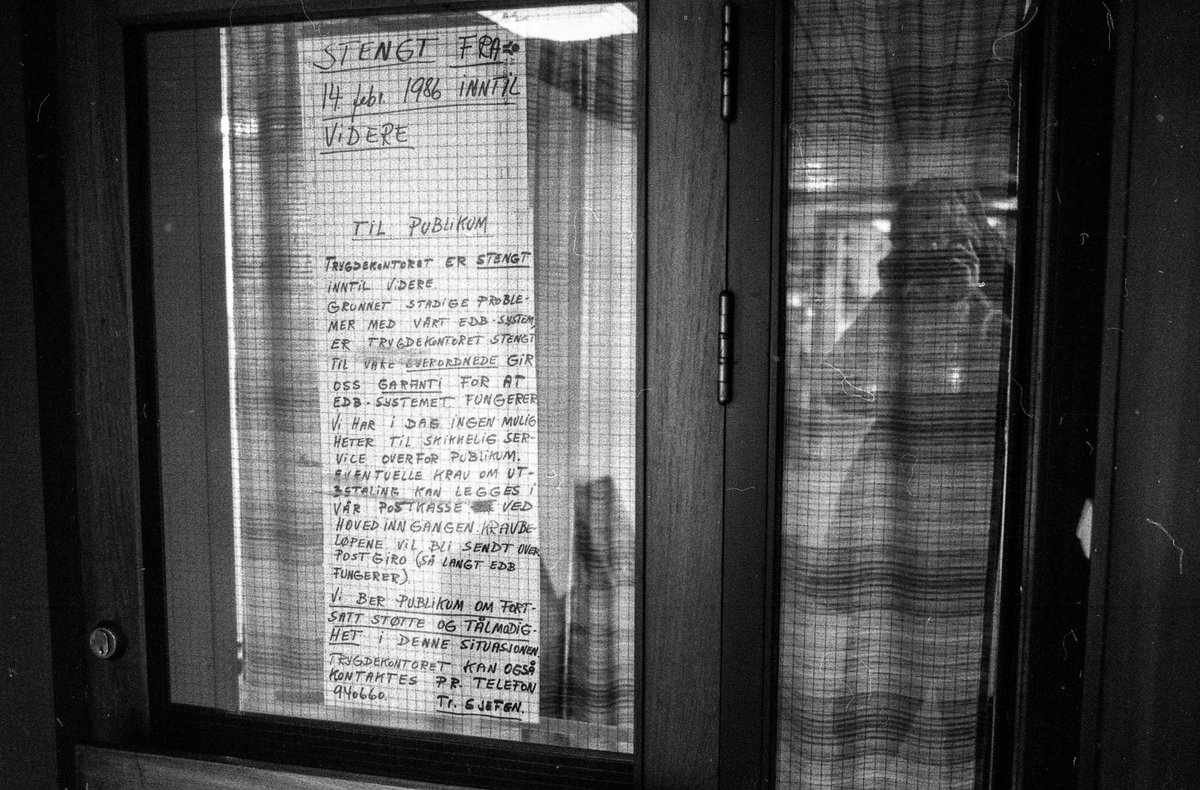 STENGT FRA
14 febr. 1986 INNTIL
VIDERE
TIL PUBLIKUM
TRYGDEKONTORET ER STENGT
INNTIL VIDERE
GRUNNET STADIGE PROBLE-
MER MED VÅRT EDB-SYSTEM,
ER TRYGDEKONTORET STENGT
TIL VÅRE OVERORDNEDE GIR
OSS GARANTI FOR AT
EDB-SYSTEMET FUNGERER
VI HAR I DAG INGEN MULIG
HETER TIL SKIKKELIG SER-
VICE OVERFOR PUBLIKUM.
EVENTUELLE KRAV OM UT-
BETALING KAN LEGGES I
VÅR POSTKASSE VED
HOVEDINNGANGEN. KRAVBE-
LØPENE VIL BLI SENDT OVER
POSTGIRO (SÅ LANGT EDB
FUNGERER)
VI BER PUBLIKUM OM FORT-
SATT STØTTE OG TÅLMODIG-
HET I DENNE SITUASJONEN.
TRYGDEKONTORET KAN OGSÅ
KONTAKTES PR. TELEFON
940660.
Tr. SJEFEN.